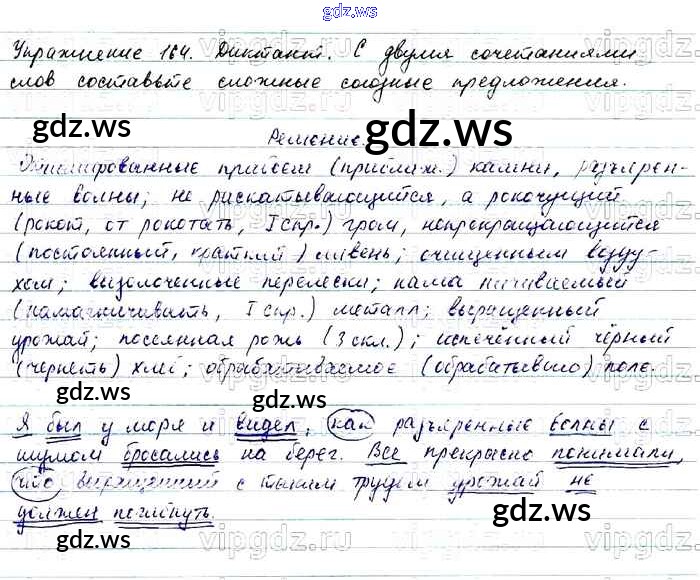 gdz.ws
Упражнение 164. Диктант. С двумя сочетаниями
слов составьте сложные союзные предложения.
gdz.ws
gdz.ws
Решение.
прибоем (прибляж.) камни, разъярен-
ные волны; не рискатывающийся, а рокочущий
(рокот, от рокотать, I спр.) гром, непрекращающийся
(постоянный, краткий) ливень; очищенным возду-
хом; вызолоченные перелески; нама ничиваемый
(намагничивать, I спр.) металл; выращенный
урожай; посеянная рожь (3 скл.); испечённый чёрный
(чернеть) хлеб; обрабатываемое (обрабатывшо) поле.
gdz.ws
gdz.ws
Я был у моря и видел, как разъяренные волны с
шумом бросались на берег. Все прекрасно понимали,
что выращенный с таким трудом урожай не
должен погибнуть.
gdz.ws
gdz.ws
gdz.ws
vipgdz.ws